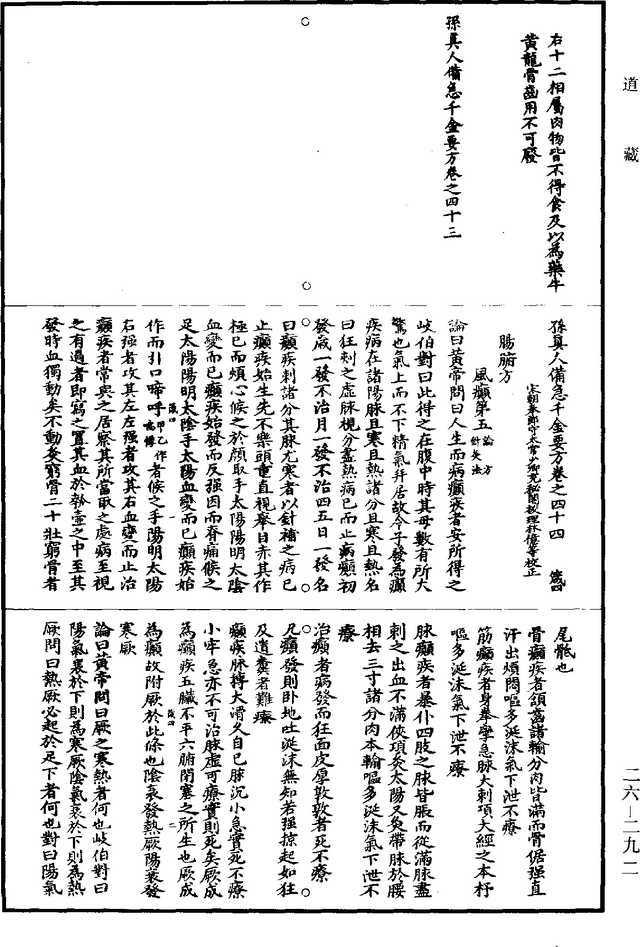 道藏
右十二相屬肉物皆不得食及以為藥牛
黃龍骨齒用不可廢
孫真人備急千金要方卷之四十三
孫真人備急千金要方卷之四十四 歲四
宋朝奉郎守太常少卿充秘閣校理林億等校正
腸腑方
風癲第五 論 方 針灸法
論曰黃帝問曰人生而病癲疾者安所得之
岐伯對曰此得之在腹中時其母數有所大
驚也氣上而不下精氣并居故令子發為癲
疾病在諸陽脉且寒且熱諸分且寒且熱名
曰狂刺之虛脉視分盡熱病已而止病癲初
發歲一發不治月一發不治四五日一發名
曰癲疾刺諸分其脉尤寒者以針補之病已
止癲疾始生先不樂頭重直視舉目赤其作
極已而煩心候之於顏取手太陽陽明太陰
血變而已癲疾始發而反强因而脊痛候之
足太陽陽明太陰手太陽血變而已癲疾始
作而引口啼呼甲乙作喘悸者候之手陽明太陽
右强者攻其左左强者攻其右血變而止治
癲疾者常與之居察其所當取之處病至視
之有過者即寫之置其血於瓠壺之中至其
發時血獨動矣不動灸窮骨二十壯窮骨者
尾骶也
骨癲疾者頷齒諸輸分肉皆滿而骨倨强直
汗出煩悶嘔多涎沫氣下泄不療
筋癲疾者身拳攣急脉大刺項大經之本杼
嘔多涎沫氣下泄不療
脉癲疾者暴仆四肢之脉皆脹而從滿脉盡
刺之出血不滿俠項灸太陽又灸帶脉於腰
相去三寸諸分肉本輸嘔多涎沫氣下泄不
療
治癲者病發而狂面皮厚敦敦者死不療
凡癲發則卧地吐涎沫無知若强掠起如狂
及遺糞者難療
癲疾脉搏大滑久自已脉沉小急實死不療
小牢急亦不可治脉虛可療實則死矣厥成
為癲疾五臟不平六腑閉塞之所生也厥成
為癲故附厥於此條也陰衰發熱厥陽衰發
寒厥
論曰黃帝問曰厥之寒熱者何也岐伯對曰
陽氣衰於下則為寒厥陰氣衰於下則為熱
厥問曰熱厥必起於足下者何也對曰陽氣
二六—二九二